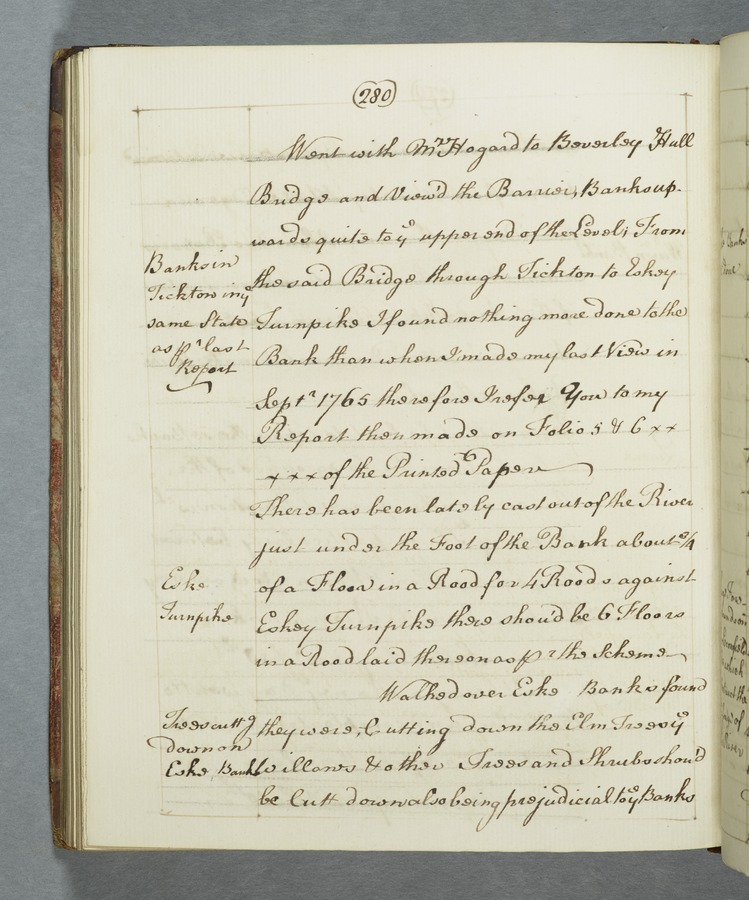 280
Went with Mr Hogard to Beverley Hull
Bridge and View'd the Barrier, Banks up-
wards quite to ye upper end of the Level; From
Banks in
the said Bridge through Tickton to Eskey
Tickton in ye
same State
Turnpike I found nothing more done to the
as pr last
Report
Bank than when I made my last View in
Septr 1765 therefore I refer You to my
Report then made on Folio 5 & 6 x x
x x x of the Printed Paper
There has been lately cast out of the River
just under the Foot of the Bank about 3/4
Eske
Turnpike
of a Floor in a Rood for 4 Roods against
Eskey Turnpike there shou'd be 6 Floors
in a Rood laid thereon as pr the Scheme
Walked over Eske Banks found
Trees cuttg
down on
Eske Banks
they were, Cutting down the Elm Trees ye
Willows & other Trees and Shrubs shou'd
be Cutt down also being prejudicial to ye Banks